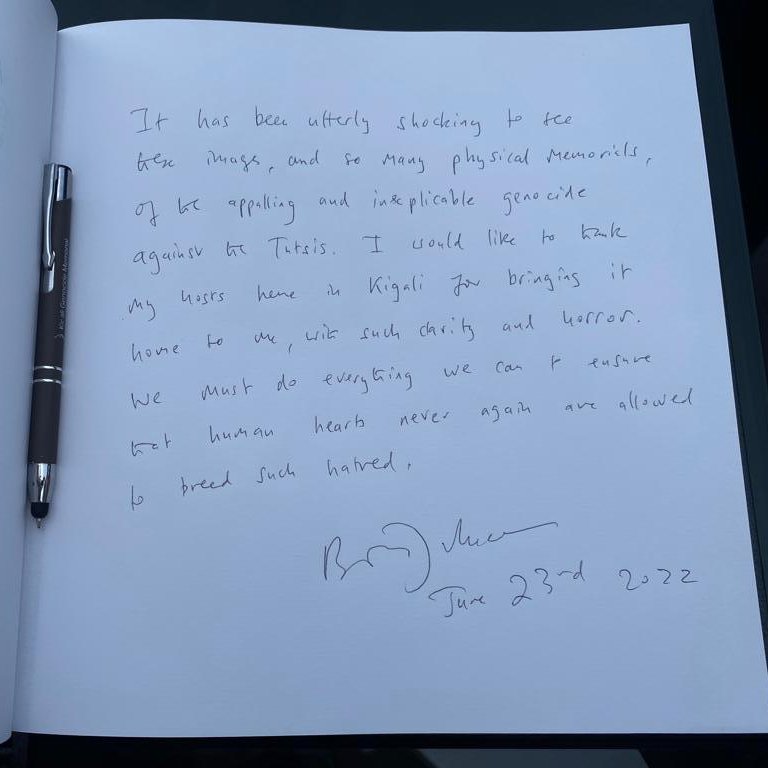 It has been utterly shocking to see
these images, and so many physical memorials,
of the appalling and inexplicable genocide
against the Tutsis. I would like to thank
my hosts here in Kigali for bringing it
home to me, with such clarity and horror.
We must do everything we can to ensure
that human hearts never again are allowed
to breed such hatred.
Boris Johnson
June 23rd 2022
Kigali Genocide Memorial